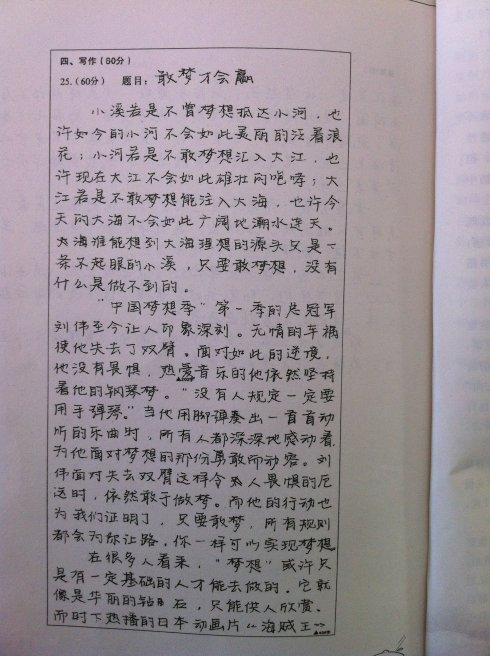 四、写作（60分）
25.（60分） 题目：敢梦才会赢
小溪若是不曾梦想抵达小河，也
许如今的小河不会如此灵丽的泛着浪
花；小河若是不敢梦想汇入大江，也
许现在大江不会如此雄壮的咆哮；大
江若是不敢梦想能注入大海，也许今
天的大海不会如此广阔地潮水连天。
大海谁能想到大海理想的源头只是一
条不起眼的小溪，只要敢梦想，没有
什么是做不到的。
“中国梦想季”第一季的总冠军
刘伟至今让人印象深刻。无情的车祸
使他失去了双臂。面对如此的逆境，
他没有畏惧，热爱音乐的他依然坚持
着他的钢琴梦。“没有人规定一定要
用手弹琴。”当他用脚弹奏出一首首动
听的乐曲时，所有人都深深地感动着，
为他面对梦想的那份勇敢而动容。刘
伟面对失去双臂这样令人畏惧的厄
运时，依然敢于做梦。而他的行动也
为我们证明了，只要敢梦，所有规则
都会为你让路。你一样可以实现梦想。
在很多人看来，“梦想”或许只
是有一定基础的人才能去做的。它就
像是华丽的钻石，只能供人欣赏。
而时下热播的日本动画片《海贼王》